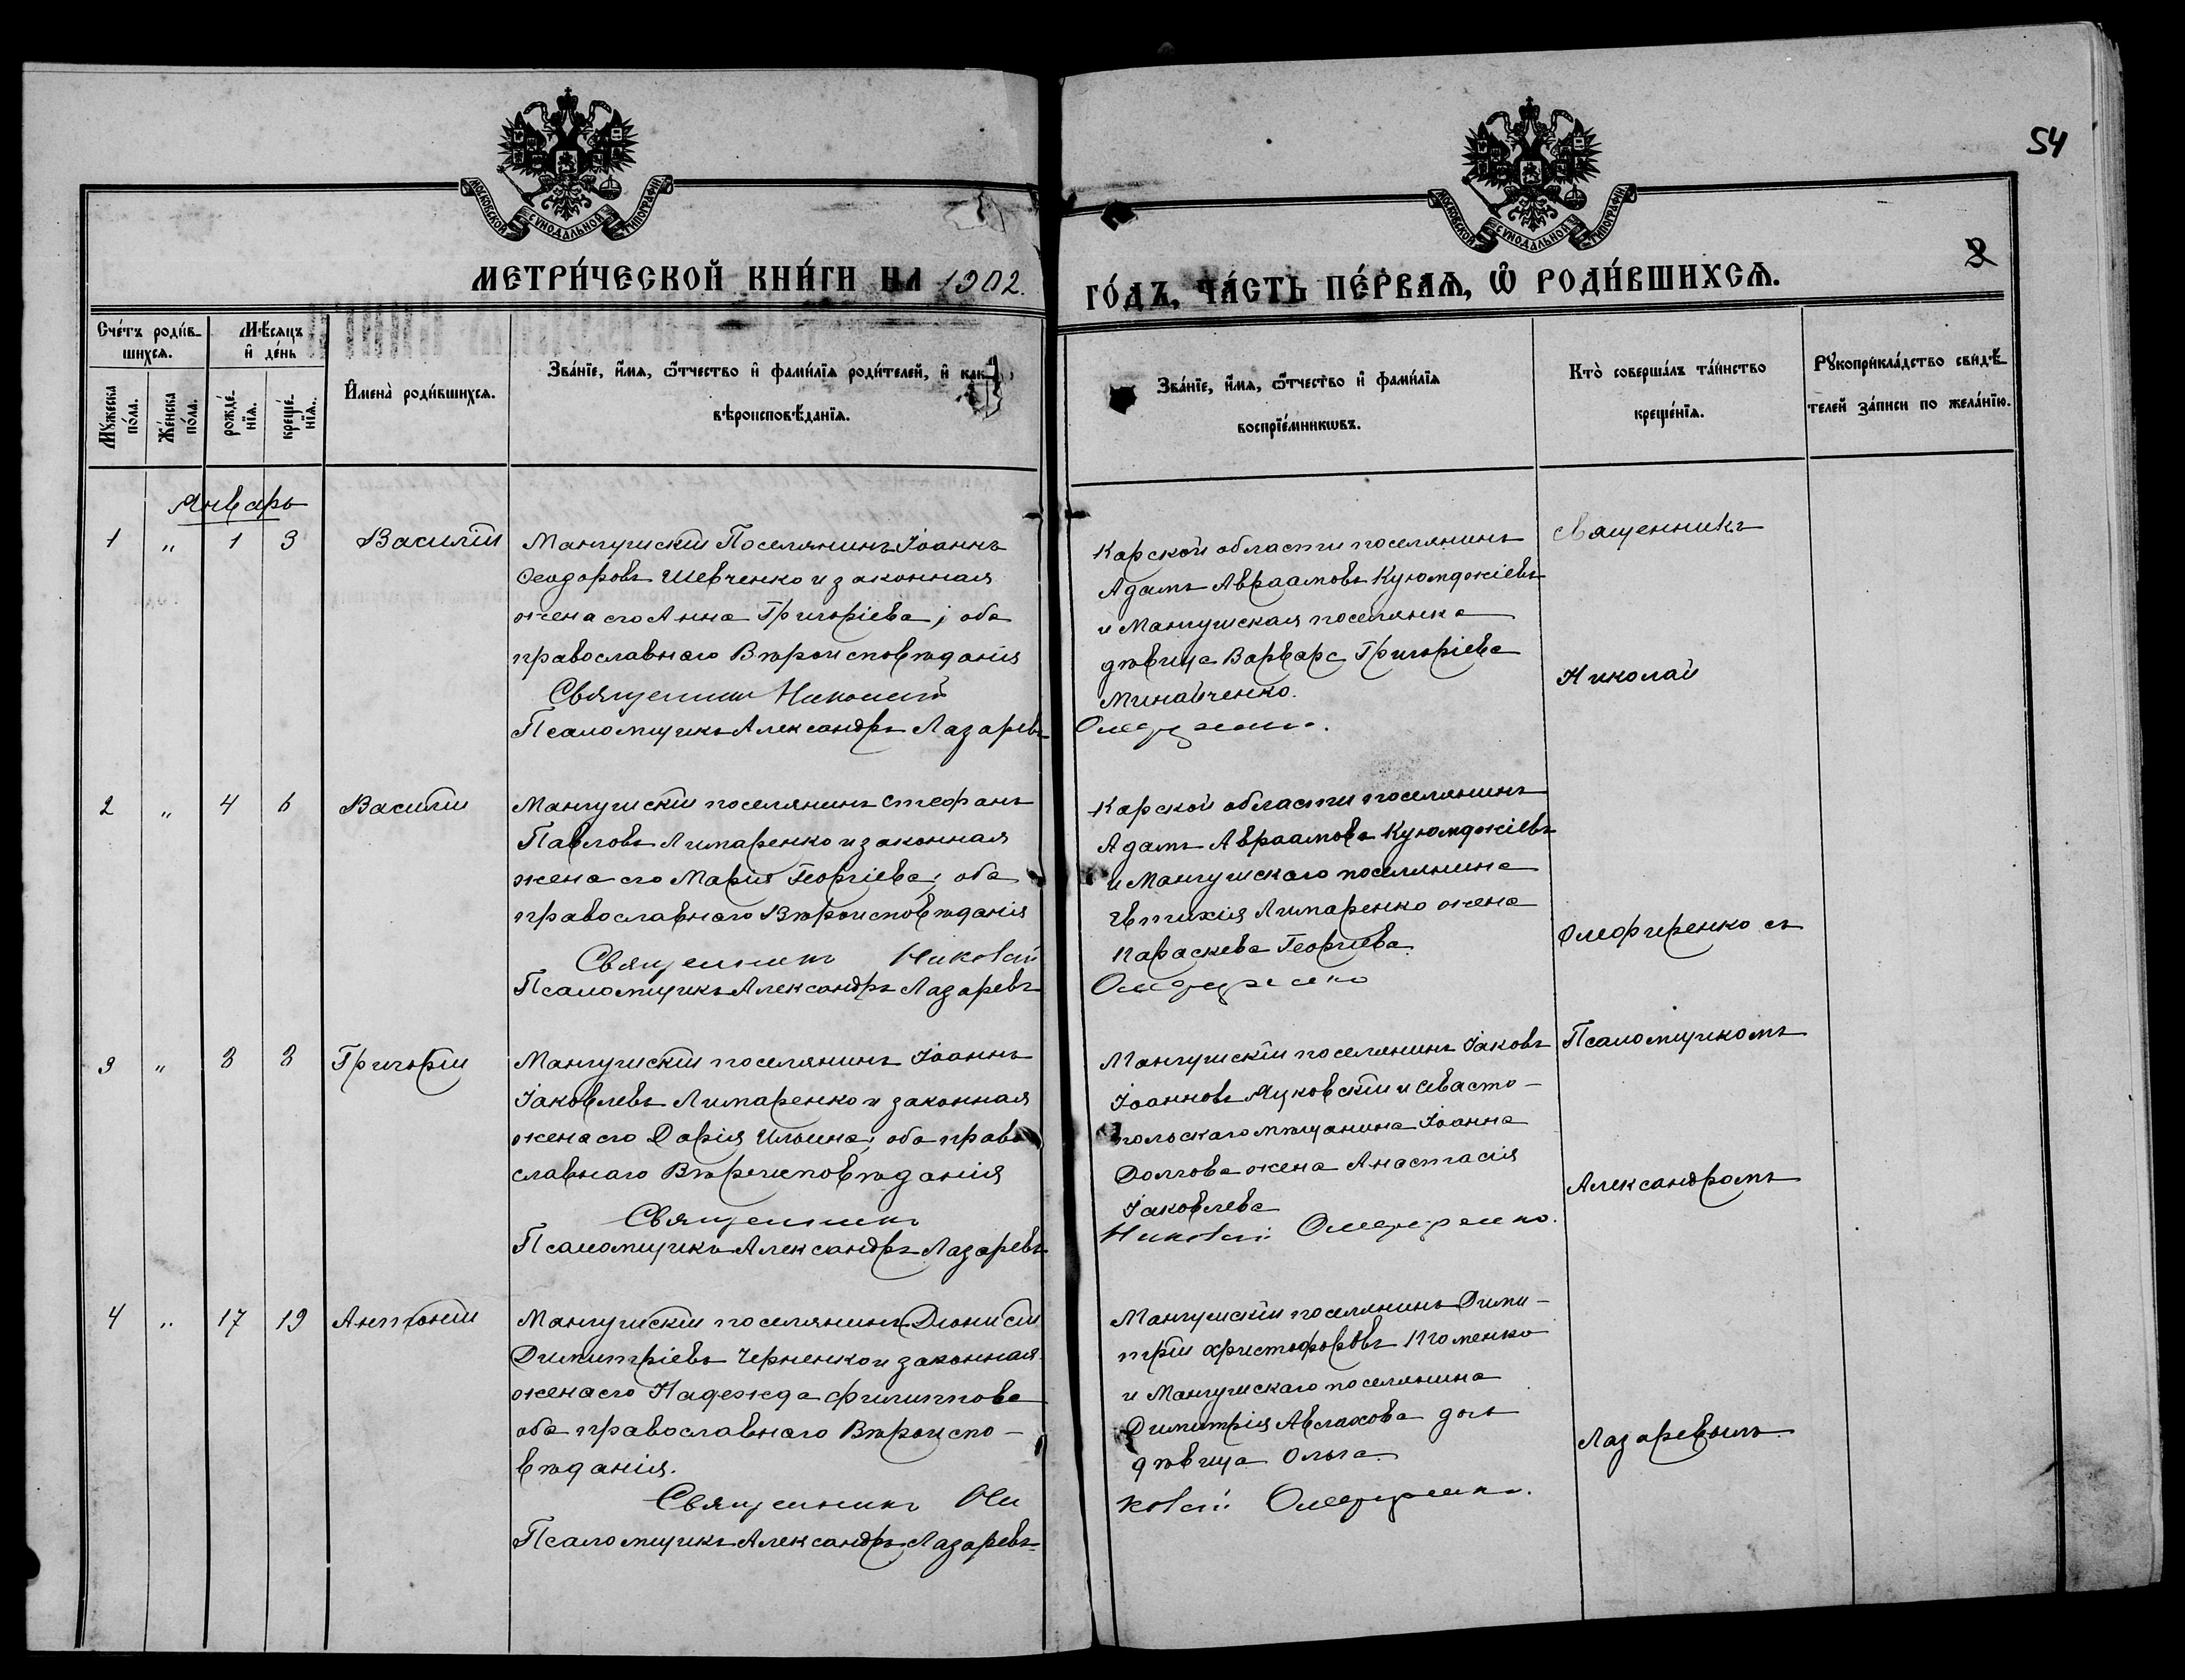 54
2
МОСКОВСКОЙ СѴНОДАЛЬНОЙ ТИПОГРАФІИ
МОСКОВСКОЙ СѴНОДАЛЬНОЙ ТИПОГРАФІИ
МЕТРИ́ЧЕСКОЙ КНИ́ГИ НА 1902.
ГО́ДЪ, ЧА́СТЬ ПЕ́РВАѦ, Ѽ РОДИ́ВШИХСѦ.
Сче́тъ роди́в-
шихсѧ.
Мꙋ́жеска по́ла.
Же́нска по́ла.
Мѣ́сѧцъ
и҆ де́нь
рожде́-
нїѧ.
креще́-
нїѧ.
И҆мена̀ роди́вшихсѧ.
Зва́нїе, и҆́мѧ, ѻ҆́тчество и҆ фами́лїѧ роди́телей, и҆ как
вѣроисповѣ́данїѧ.
Зва́нїе, и҆́мѧ, ѻ҆́тчество и҆ фами́лїѧ
воспрїе́мникѡвъ.
Кто̀ соверша́лъ та́инство
креще́нїѧ.
Рꙋкоприкла́дство свидѣ́-
телей за́писи по жела́нїю.
Январь
1 " 1 3 Василій
Мангушскій Поселянинъ Іоаннъ
Ѳеодоровъ Шевченко и законная
жена его Анна Григоріева; оба
православнаго Вѣроисповѣданія
Священникъ Николай
Псаломщикъ Александръ Лазаревъ
Карской области поселянинъ
Адамъ Авраамовъ Куюмджіевъ
и Мангушская поселянка
дѣвица Варвара Григоріева
Минайченко.
Омефиренко.
Священникъ
Николай
2 " 4 6 Василій
Мангушскій поселянинъ Стефанъ
Павловъ Лимаренко и законная
жена его Марія Георгіева; оба
православнаго Вѣроисповѣданія
Священникъ Николай
Псаломщикъ Александръ Лазаревъ
Карской области поселянинъ
Адамъ Авраамовъ Куюмджіевъ
и Мангушскаго поселянина
Евтихія Лимаренко жена
Параскева Георгіева.
Омефиренко
Омефиренко съ
3 " 8 8 Григорій
Мангушскій поселянинъ Іоаннъ
Іаковлевъ Лимаренко и законная
жена его Дарія Ильина; оба право
славнаго Вѣроисповѣданія
Священникъ
Псаломщикъ Александръ Лазаревъ
Мангушскій поселянинъ Іаковъ
Іоанновъ Яцковскій и Севасто-
польскаго мѣщанина Іоанна
Долгова жена Анастасія
Іаковлева
Николай Омефиренко.
Псаломщикомъ
Александромъ
4 " 17 19 Антоній
Мангушскій поселянинъ Діонисій
Димитріевъ Черненко и законная
жена его Надежда Филиппова
оба православнаго Вѣроиспо-
вѣданія.
Священникъ Ни
Псаломщикъ Александръ Лазаревъ
Мангушскій поселянинъ Дими-
трій Христофоровъ
и Мангушскаго поселянина
Димитрія Авлахова дочь
дѣвица Ольга.
колай Омефиренко.
Лазаревымъ.